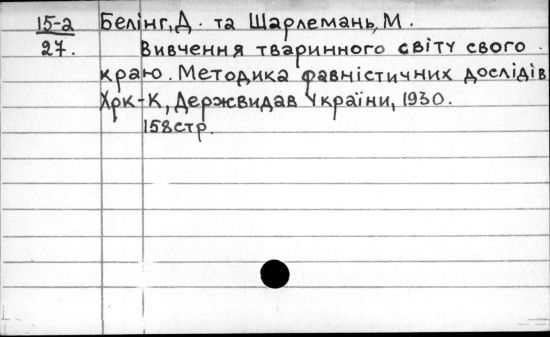 15-а Белінг, Д. та Шарлемань, М.
27. Вивчення тваринного світу свого
краю. Методика фавністичних дослідів.
Хрк-К, Держвидав України, 1930.
158стр.